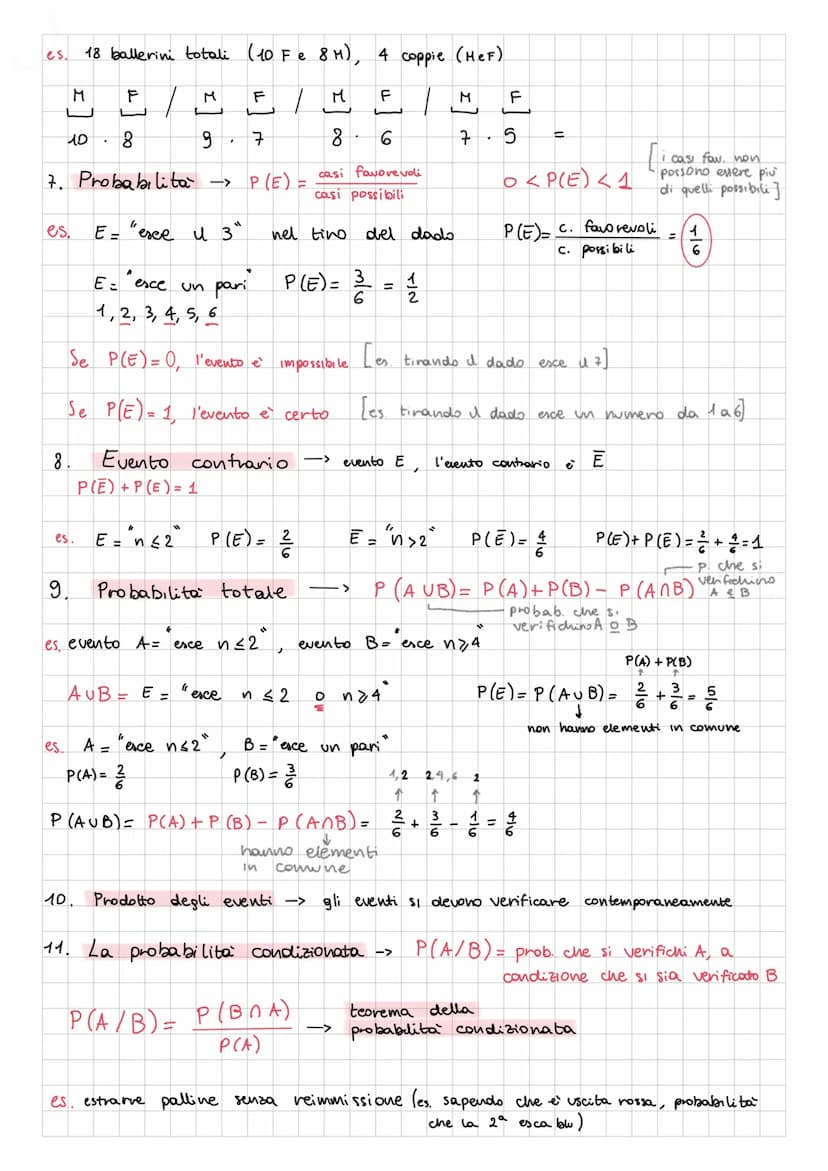 es. 18 ballerini totali (10 F e 8 M), 4 coppie (M e F)
M F / M F / M F / M F
10 · 8 9 · 7 8 · 6 7 · 5 =
7. Probabilità → P(E) = casi favorevoli / casi possibili 0 < P(E) < 1 [i casi fav. non possono essere più di quelli possibili]
es. E = "esce il 3" nel tiro del dado P(E) = c. favorevoli / c. possibili = 1/6
E = "esce un pari" P(E) = 3/6 = 1/2
1, 2, 3, 4, 5, 6
Se P(E) = 0, l'evento è impossibile [es. tirando il dado esce il 7]
Se P(E) = 1, l'evento è certo [es. tirando il dado esce un numero da 1 a 6]
8. Evento contrario → evento E, l'evento contrario è Ē
P(Ē) + P(E) = 1
es. E = "n ≤ 2" P(E) = 2/6 Ē = "n > 2" P(Ē) = 4/6 P(E) + P(Ē) = 2/6 + 4/6 = 1
9. Probabilità totale → P(A ∪ B) = P(A) + P(B) - P(A ∩ B)
p. che si verifichino A e B
probab. che si verifichino A o B
es. evento A = "esce n ≤ 2", evento B = "esce n ≥ 4"
P(A) + P(B)
A ∪ B = E = "esce n ≤ 2 o n ≥ 4" P(E) = P(A ∪ B) = 2/6 + 3/6 = 5/6
non hanno elementi in comune
es. A = "esce n ≤ 2", B = "esce un pari"
P(A) = 2/6 P(B) = 3/6 1,2 2,4,6 2
P(A ∪ B) = P(A) + P(B) - P(A ∩ B) = 2/6 + 3/6 - 1/6 = 4/6
hanno elementi
in comune
10. Prodotto degli eventi → gli eventi si devono verificare contemporaneamente
11. La probabilità condizionata → P(A/B) = prob. che si verifichi A, a
condizione che si sia verificato B
P(A/B) = P(B ∩ A) / P(A) → teorema della
probabilità condizionata
es. estrarre palline senza reimmissione (es. sapendo che è uscita rossa, probabilità
che la 2ª esca blu)